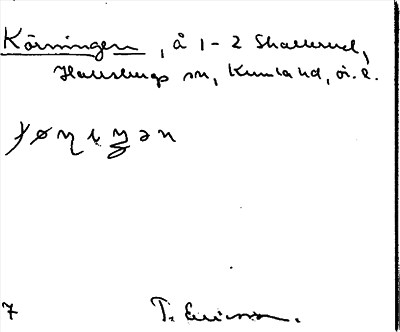 Körningen, å 1-2 Skallerud,
Hallsbergs sn, Kumla hd, ö. l.
7 T. Ericsson.